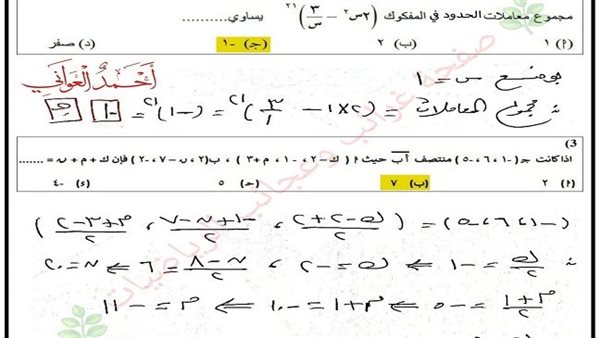 مجموع معاملات الحدود في المفكوك (٢س٢ - ٣/س)٢١ يساوي.....
(أ) ١ (ب) ٢ (جـ) -١ (د) صفر
أحمد الغواني
بوضع س = ١
∴ مجموع المعاملات = (٢×١ - ٣/١)٢١ = (-١)٢١ = -١ جـ
(3
اذا كانت جـ (-١، ٦، -٥) منتصف أب حيث أ (ك-٢، -١، م+٣)، ب(٢، ن-٧، -٢) فإن ك + م + ن = ........
(أ) ٢ (ب) ٧ (جـ) ٥ (د) -٤
(-١، ٦، -٥) = (ك-٢+٢/٢، -١+ن-٧/٢، م+٣-٢/٢)
∴ ك/٢ = -١ ⇐ ك = -٢، ن-٨/٢ = ٦ ⇐ ن = ٢٠
م+١/٢ = -٥ ⇐ م+١ = -١٠ ⇐ م = -١١
صفحة غرائب وعجائب الرياضيات